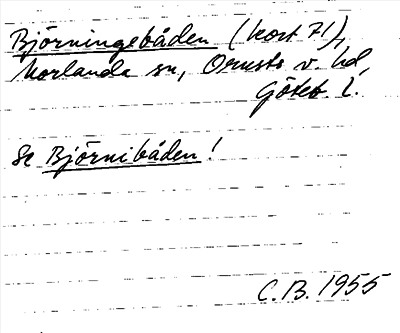 Björningebåden (kort 71),
Morlanda sn, Orusts v. hd
Göteb. l.
Se Björnibåden!
C.B. 1955